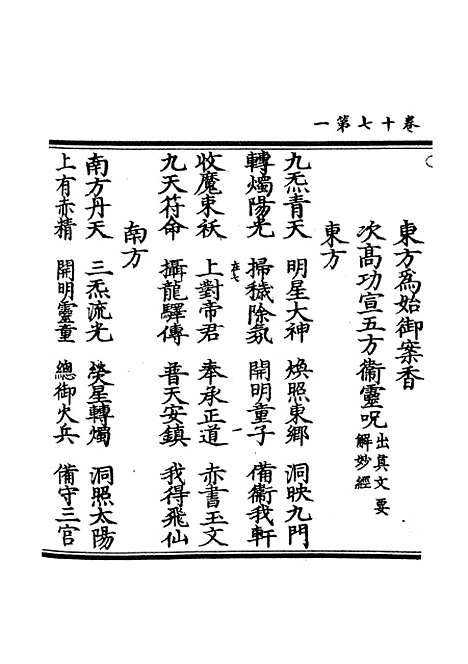 卷十七第一
東方為始御案香
次高功宣五方衞靈咒出真文要解妙經
東方
九炁青天　明星大神　煥照東鄉　洞映九門
轉燭陽光　掃穢除氛　開明童子　備衞我軒
收魔束祅　上對帝君　奉承正道　赤書玉文
九天符命　攝龍驛傳　普天安鎮　我得飛仙
南方
南方丹天　三炁流光　熒星轉燭　洞照太陽
上有赤精　開明靈童　總御火兵　備守三官